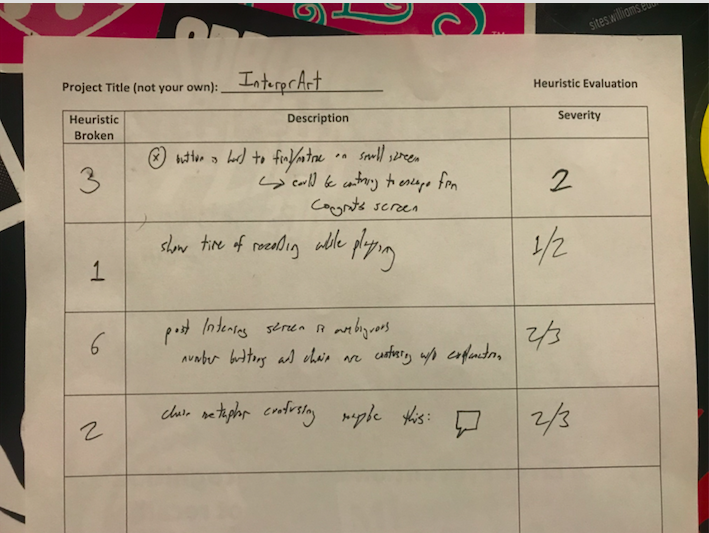 sites.williams.edu
Project Title (not your own): InterprArt
Heuristic Evaluation
Heuristic Broken
Description
Severity
3
(x) button is hard to find/notice on small screen
↳ could be confusing to escape from
Congrats screen
2
1
show time of recording while playing
1/2
6
post listening screen is ambiguous
number buttons and chain are confusing w/o explanation
2/3
2
chain metaphor confusing maybe this:
2/3